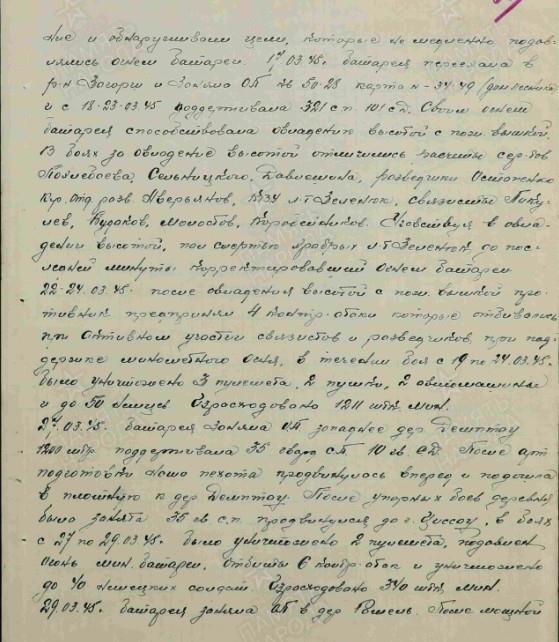 ние и обнаруживали цели, которые немедленно подав-
лялись огнем батареи. 17.03.45. батарея переехала в
р-н Загорш и заняла ОП кв 50-28 карта N-34-49 (дом лесника)
и с 18-23.03.45 поддерживала 321 с.п. 101 с.д. Своим огнем
батарея способствовала овладению высотой с пож. вышкой.
В боях за овладение высотой отличились расчеты сер-тов
Сельницкого, разведчики Остапенко
ком. отд. разв. Аверьянов, л-т Зеленюк, связисты
Кудаков, Коробейников. Участвуя в овла-
дении высотой, пал смертью храбрых л-т Зеленюк до пос-
ледней минуты корректировавший огнем батареи
22-24.03.45. после овладения высотой с пож. вышкой про-
тивник предпринял 4 контр-атаки которые отбивались
при активном участии связистов и разведчиков, при под-
держке минометного огня, в течении боя с 19 по 24.03.45.
было уничтожено 3 пулемета, 2 пушки, 2 автомашины
и до 50 немцев. Израсходовано 1211 штк. мин.
27.03.45. батарея заняла ОП западнее дер. Демптау
1200 мтр. поддерживала 35 гвард СП 10 гв. СД. После арт
подготовки наша пехота продвинулась вперед и подошла
в плотную к дер. Демптау. После упорных боев деревня
была занята 35 гв. с.п. продвинулся до г. Циссау, в боях
с 27 по 29.03.45. было уничтожено 2 пулемета, подавлен
огонь мин. батареи, отбиты 6 контр-атак и уничтожено
до 40 немецких солдат. Израсходовано 340 штк. мин.
29.03.45. батарея заняла ОП в дер. После мощной